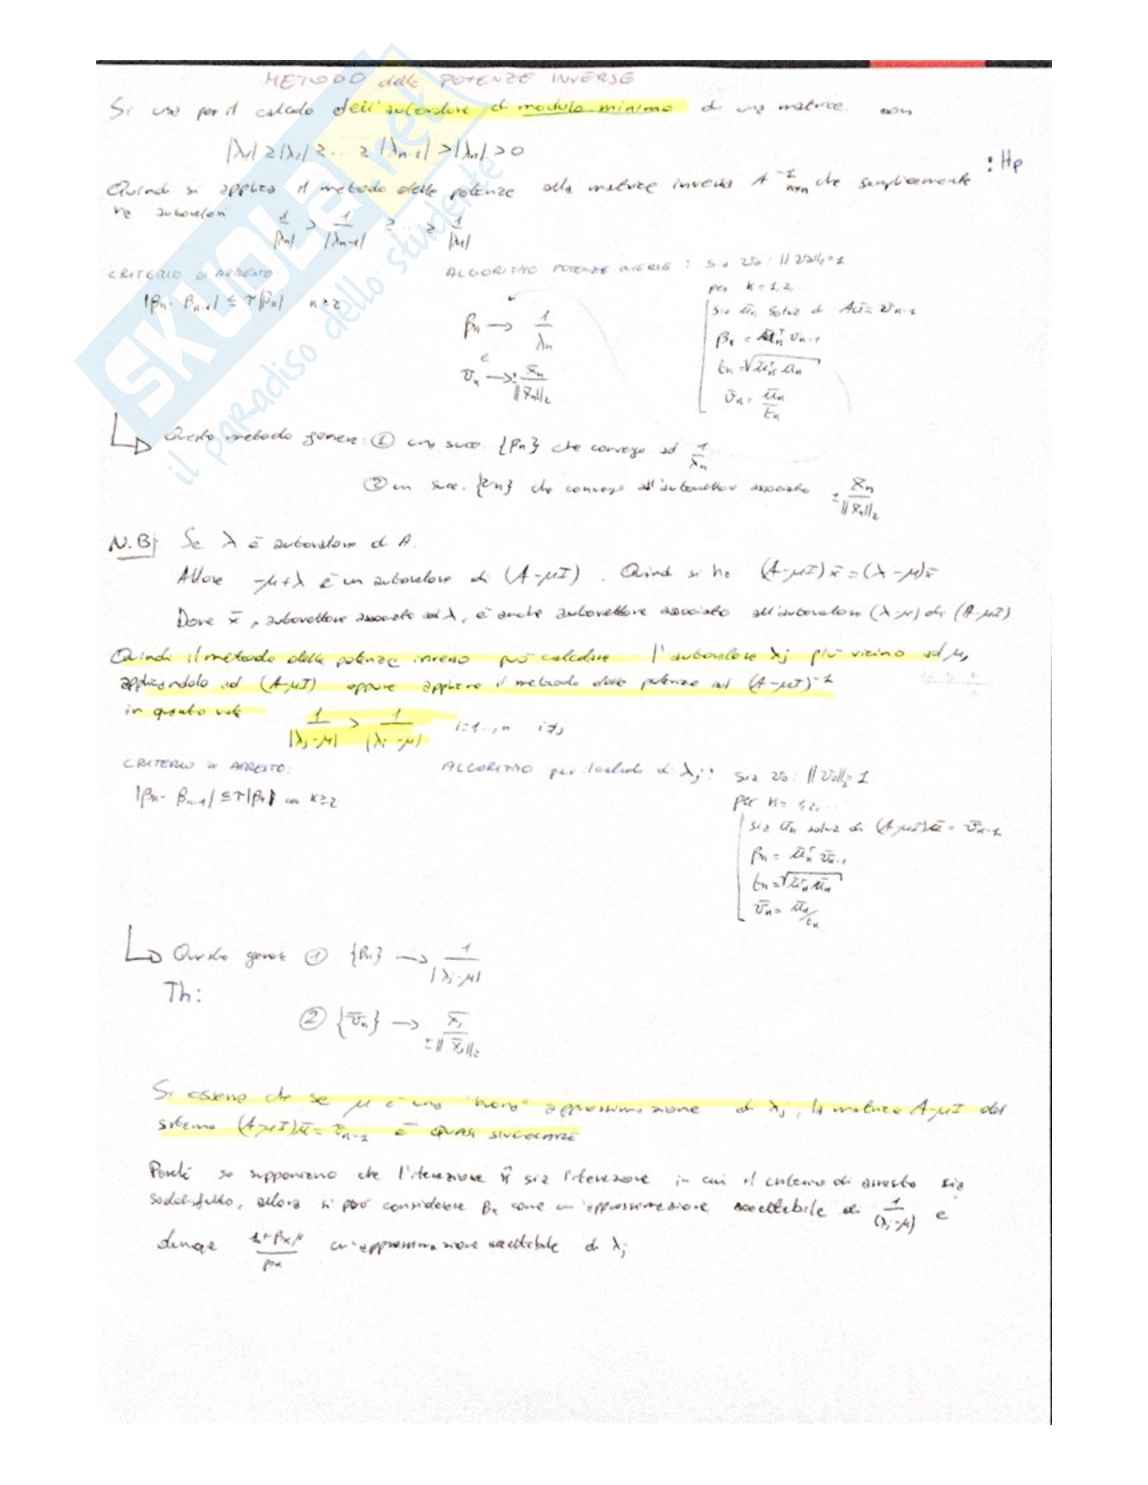 METODO delle POTENZE INVERSE
Si usa per il calcolo dell'autovalore di modulo minimo di una matrice con
|λ1| ≥ |λ2| ≥ ... ≥ |λn-1| > |λn| > 0
: Hp
Quindi si applica il metodo delle potenze alla matrice inversa A⁻¹ nxn che semplicemente
ha autovalori 1/|λn| > 1/|λn-1| ≥ ... ≥ 1/|λ1|
CRITERIO di ARRESTO
|βk - βk-1| ≤ τ|βk| k≥2
ALGORITMO POTENZE INVERSE : sia v̄0 : ||v̄0||2=1
per k=1,2..
sia ūk soluz di Aū = v̄k-1
βk = ūkᵀ v̄k-1
tk = √(ūkᵀ ūk)
v̄k = ūk/tk
βk → 1/λn
e
v̄k → ± x̄n/||x̄n||2
Questo metodo genera: ① una succ. {βk} che converge ad 1/λn
② un succ. {v̄k} che converge all'autovettore associato ± x̄n/||x̄n||2
N.B| Se λ è autovalore di A.
Allora -μ+λ è un autovalore di (A-μI). Quindi si ha (A-μI)x̄=(λ-μ)x̄
Dove x̄, autovettore associato ad λ, è anche autovettore associato all'autovalore (λ-μ) di (A-μI)
Quindi il metodo delle potenze inverso può calcolare l'autovalore λj più vicino ad μ,
applicandolo ad (A-μI) oppure applicare il metodo delle potenze ad (A-μI)⁻¹
in questo 1/|λj-μ| > 1/|λi-μ| i=1..,n i≠j
CRITERIO di ARRESTO:
|βk - βk-1| ≤ τ|βk| con k≥2
ALGORITMO per il calcolo di λj: sia v̄0 : ||v̄0||2=1
per k= 1,2,..
sia ūk soluz di (A-μI)ū = v̄k-1
βk = ūkᵀ v̄k-1
tk = √(ūkᵀ ūk)
v̄k = ūk/tk
Questo genera ① {βk} → 1/|λj-μ|
Th:
② {v̄k} → ± x̄j/||x̄j||2
Si osserva che se μ è una "buona" approssimazione di λj, la matrice A-μI del
sistema (A-μI)ū = v̄k-1 è quasi singolare
Perché se supponiamo che l'iterazione k̄ sia l'iterazione in cui il criterio di arresto sia
soddisfatto, allora si può considerare βk come un'approssimazione accettabile di 1/(λj-μ) e
dunque (1+βkμ)/βk un'approssimazione accettabile di λj
SKUOLA.net
il paradiso dello studente